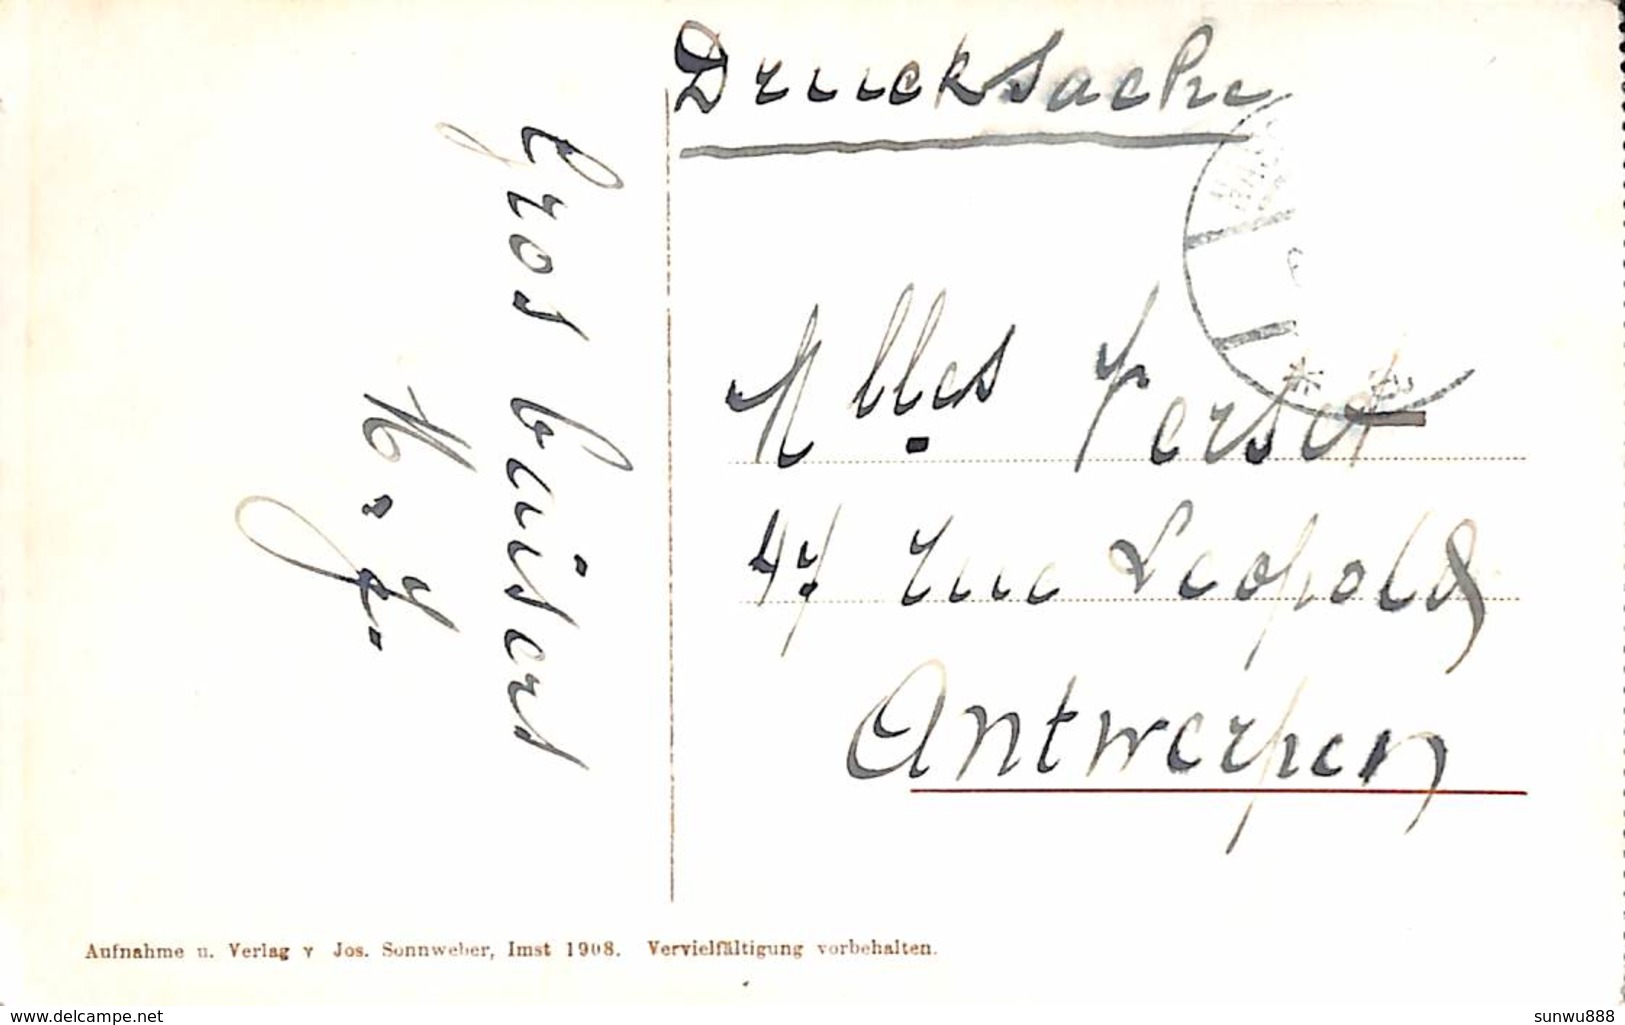 Drucksache
Gros baisers
Mlles Verset
47 rue Leopold
Antwerpen
Aufnahme u. Verlag v Jos. Sonnweber, Imst 1908. Vervielfältigung vorbehalten.
www.delcampe.net
sunwu888